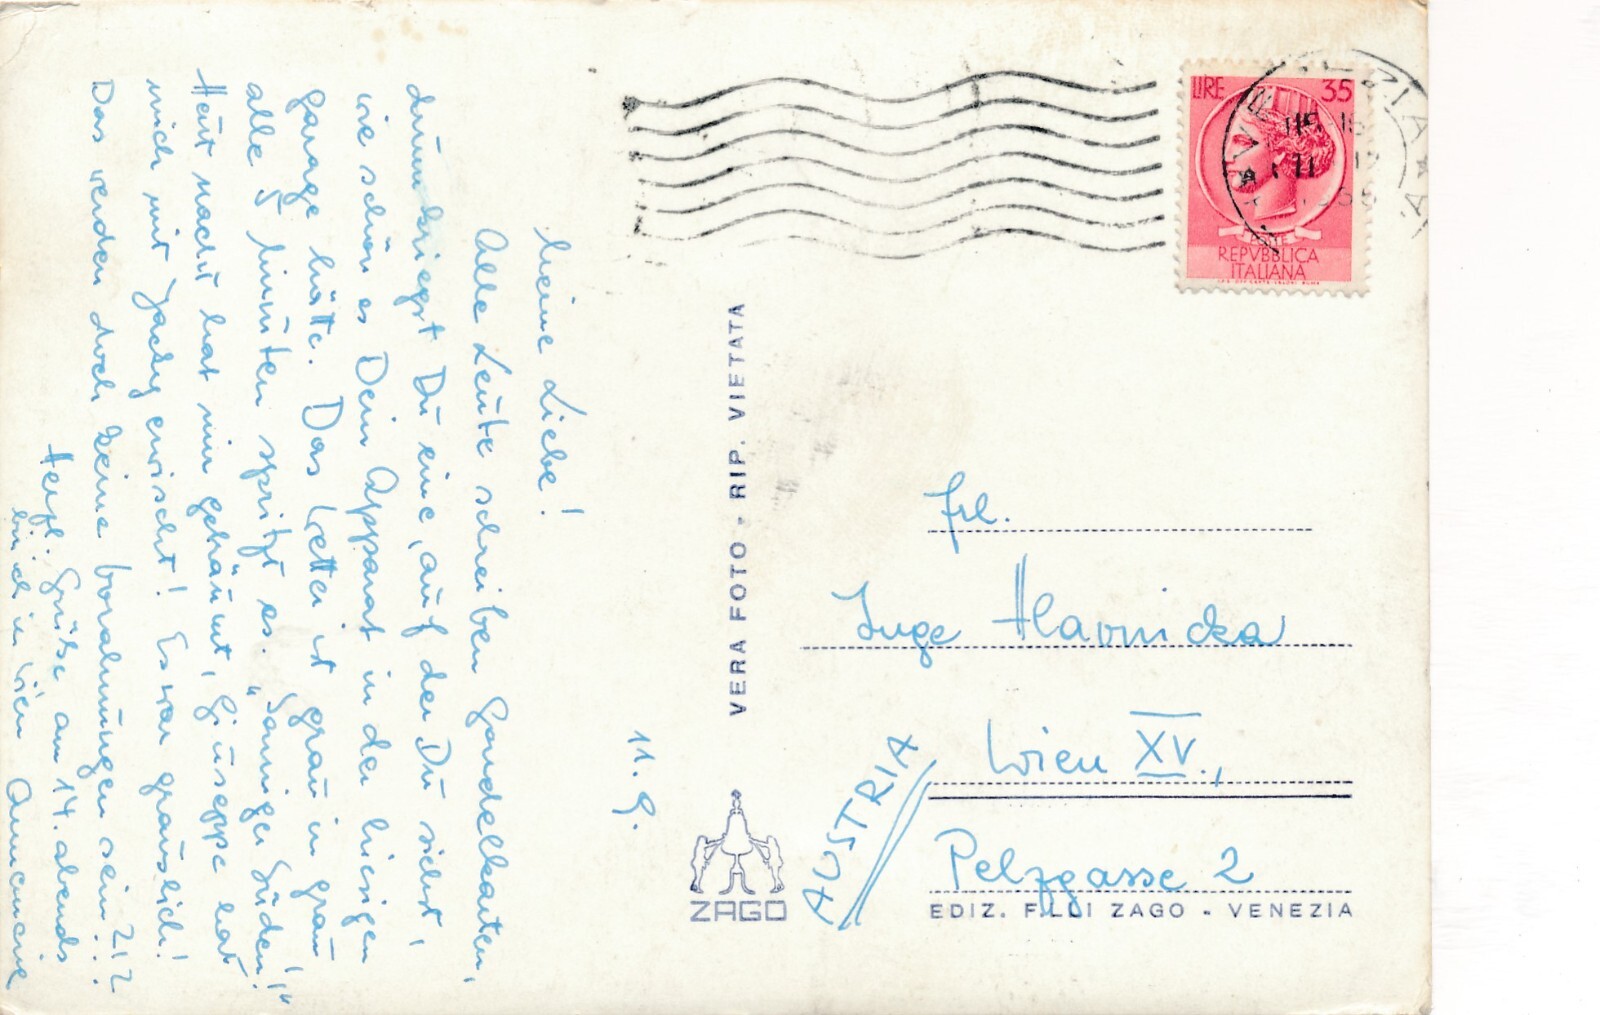 11. 9.
Meine Liebe!
Alle Leute schreiben Gondelkarten,
drum kriegst Du eine, auf der Du siehst,
wie schön es Dein Apparat in der hiesigen
Garage hätte. Das Wetter ist grau in grau
alle 5 Minuten spritzt es. "Sonniger Süden!"
Heut nacht hat mir geträumt, Giuseppe hat
mich mit Jacky erwischt! Es war grauslich!
Das werden doch keine Vorahnungen sein ...
Herzl. Grüße, am 14. abends
bin ich in Wien Annemarie
VERA FOTO - RIP. VIETATA
ZAGO
LIRE 35
POSTE
REPVBBLICA
ITALIANA
Frl.
Inge Hlavnicka
Wien XV.,
Pelzgasse 2
AUSTRIA
EDIZ. F.LLI ZAGO - VENEZIA